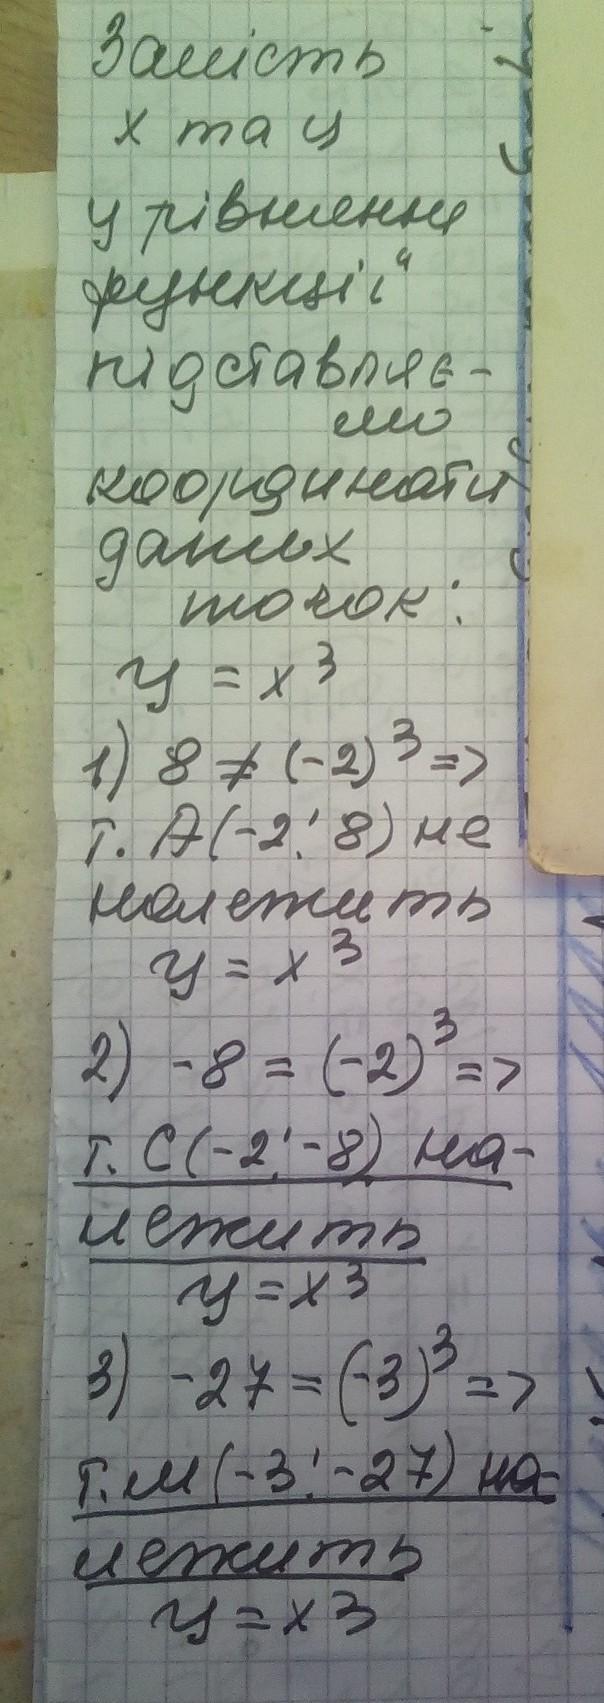 Замість
x та y
у рівняння
функції
підставляє-
мо
координати
даних
точок:
y = x³
1) 8 ≠ (-2)³ =>
т. A(-2; 8) не
належить
y = x³
2) -8 = (-2)³ =>
т. C(-2; -8) на-
лежить
y = x³
3) -27 = (-3)³ =>
т. M(-3; -27) на-
лежить
y = x3